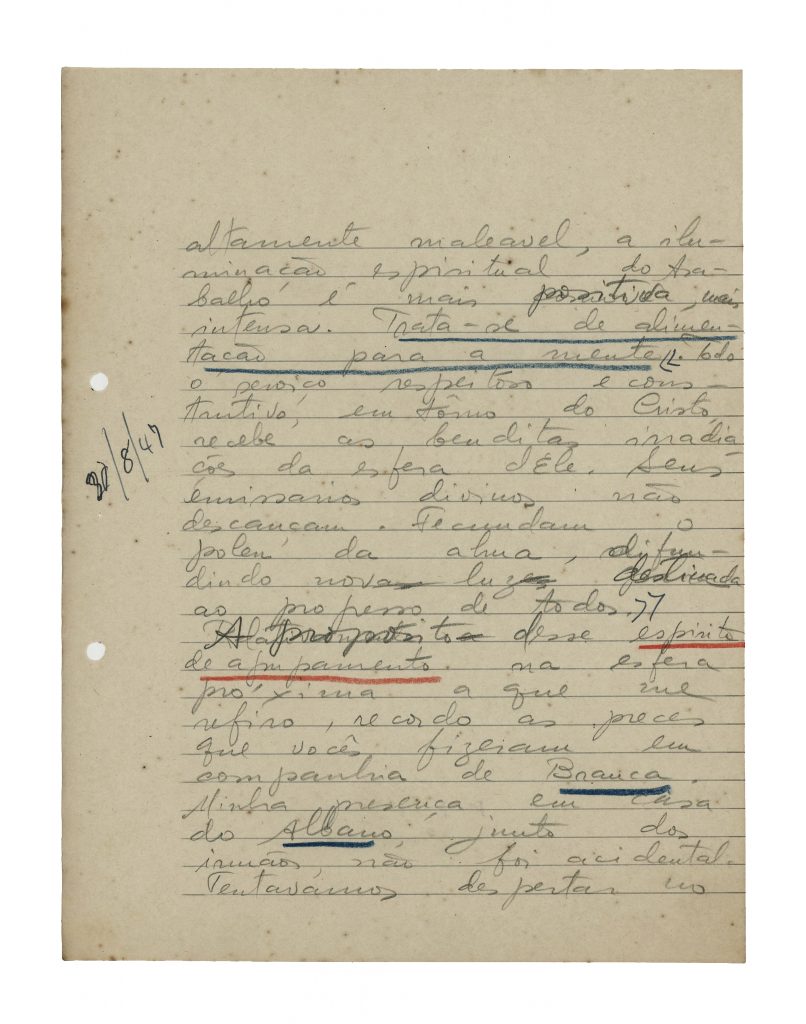 altamente maleavel, a ilu-
minação espiritual do tra-
balho é mais positiva, mais
intensa. Trata-se de alimen-
tação para a mente. Todo
o serviço respeitoso e cons-
trutivo, em tôrno do Cristo,
recebe as benditas irradia
ções da esfera dEle. Seus
emissarios divinos não
descançam. Fecundam o
polen da alma, difun-
dindo nova luz destinada
ao progresso de todos."
A propósito desse espírito
de agrupamento na esfera
próxima a que me
refiro, recordo as preces
que vocês fizeram em
companhia de Branca.
Minha presença em casa
do Albano, junto dos
irmãos, não foi acidental.
Tentavámos despertar no
8/47